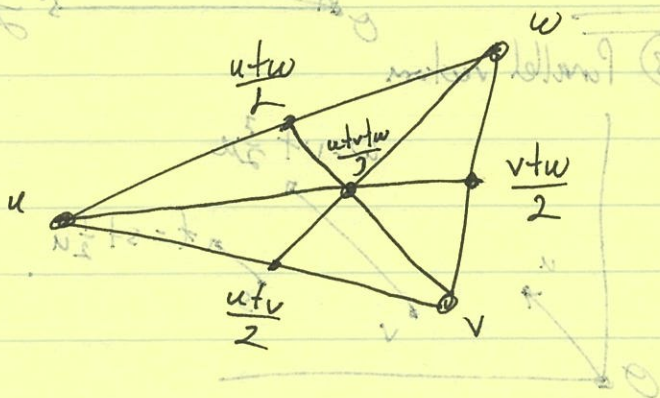 w
u+w
2
u+v+w
3
u
v+w
2
u+v
2
v